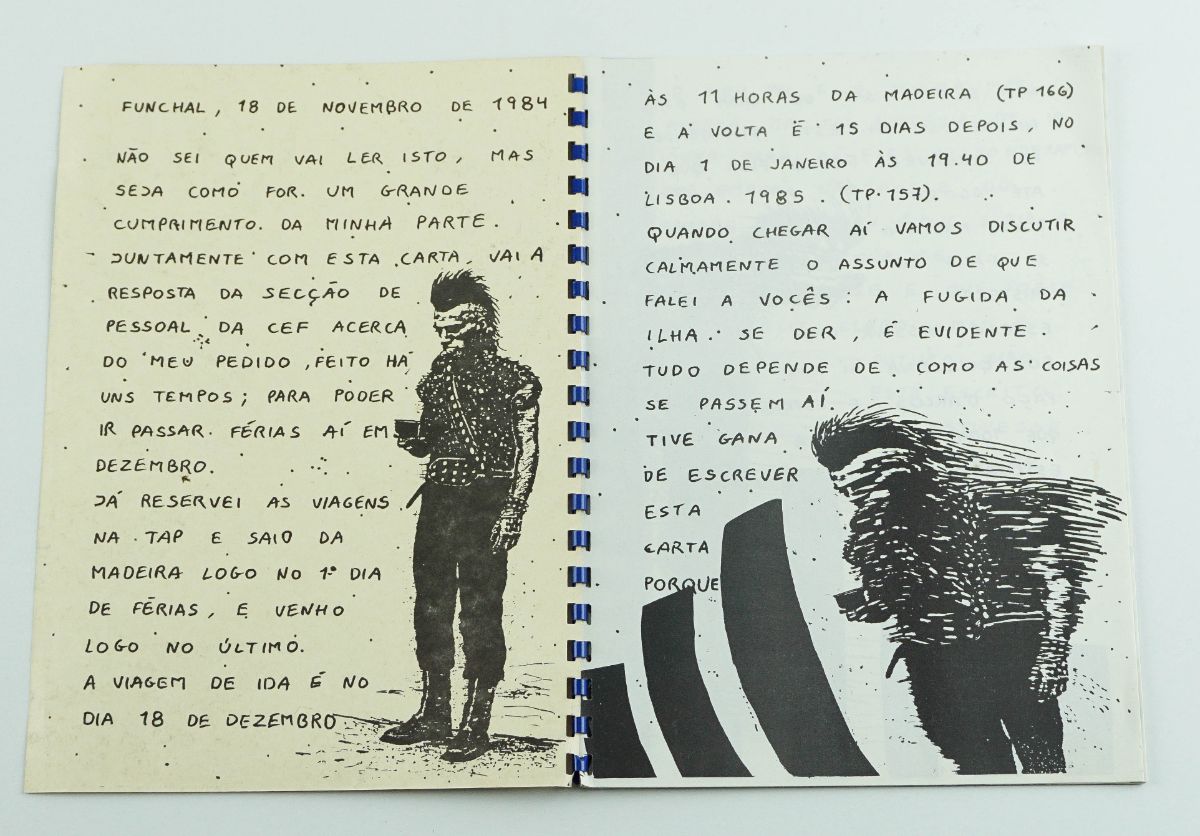 FUNCHAL, 18 DE NOVEMBRO DE 1984
NÃO SEI QUEM VAI LER ISTO, MAS
SEJA COMO FOR. UM GRANDE
CUMPRIMENTO. DA MINHA PARTE.
JUNTAMENTE COM ESTA CARTA, VAI A
RESPOSTA DA SECÇÃO DE
PESSOAL DA CEF ACERCA
DO MEU PEDIDO, FEITO HÁ
UNS TEMPOS; PARA PODER
IR PASSAR. FÉRIAS AÍ EM
DEZEMBRO.
JÁ RESERVEI AS VIAGENS
NA TAP E SAIO DA
MADEIRA LOGO NO 1º DIA
DE FÉRIAS, E VENHO
LOGO NO ÚLTIMO.
A VIAGEM DE IDA É NO
DIA 18 DE DEZEMBRO
ÀS 11 HORAS DA MADEIRA (TP 166)
E A VOLTA É 15 DIAS DEPOIS, NO
DIA 1 DE JANEIRO ÀS 19.40 DE
LISBOA. 1985. (TP.157).
QUANDO CHEGAR AÍ VAMOS DISCUTIR
CALMAMENTE O ASSUNTO DE QUE
FALEI A VOCÊS: A FUGIDA DA
ILHA. SE DER, É EVIDENTE.
TUDO DEPENDE DE COMO AS COISAS
SE PASSEM AÍ.
TIVE GANA
DE ESCREVER
ESTA
CARTA
PORQUE